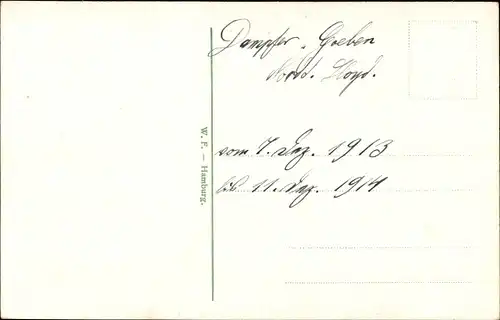 Dampfer. Goeben
Nordd. Lloyd.
vom 7. Dez. 1913
bis 11. Dez. 1914
W. F. – Hamburg.